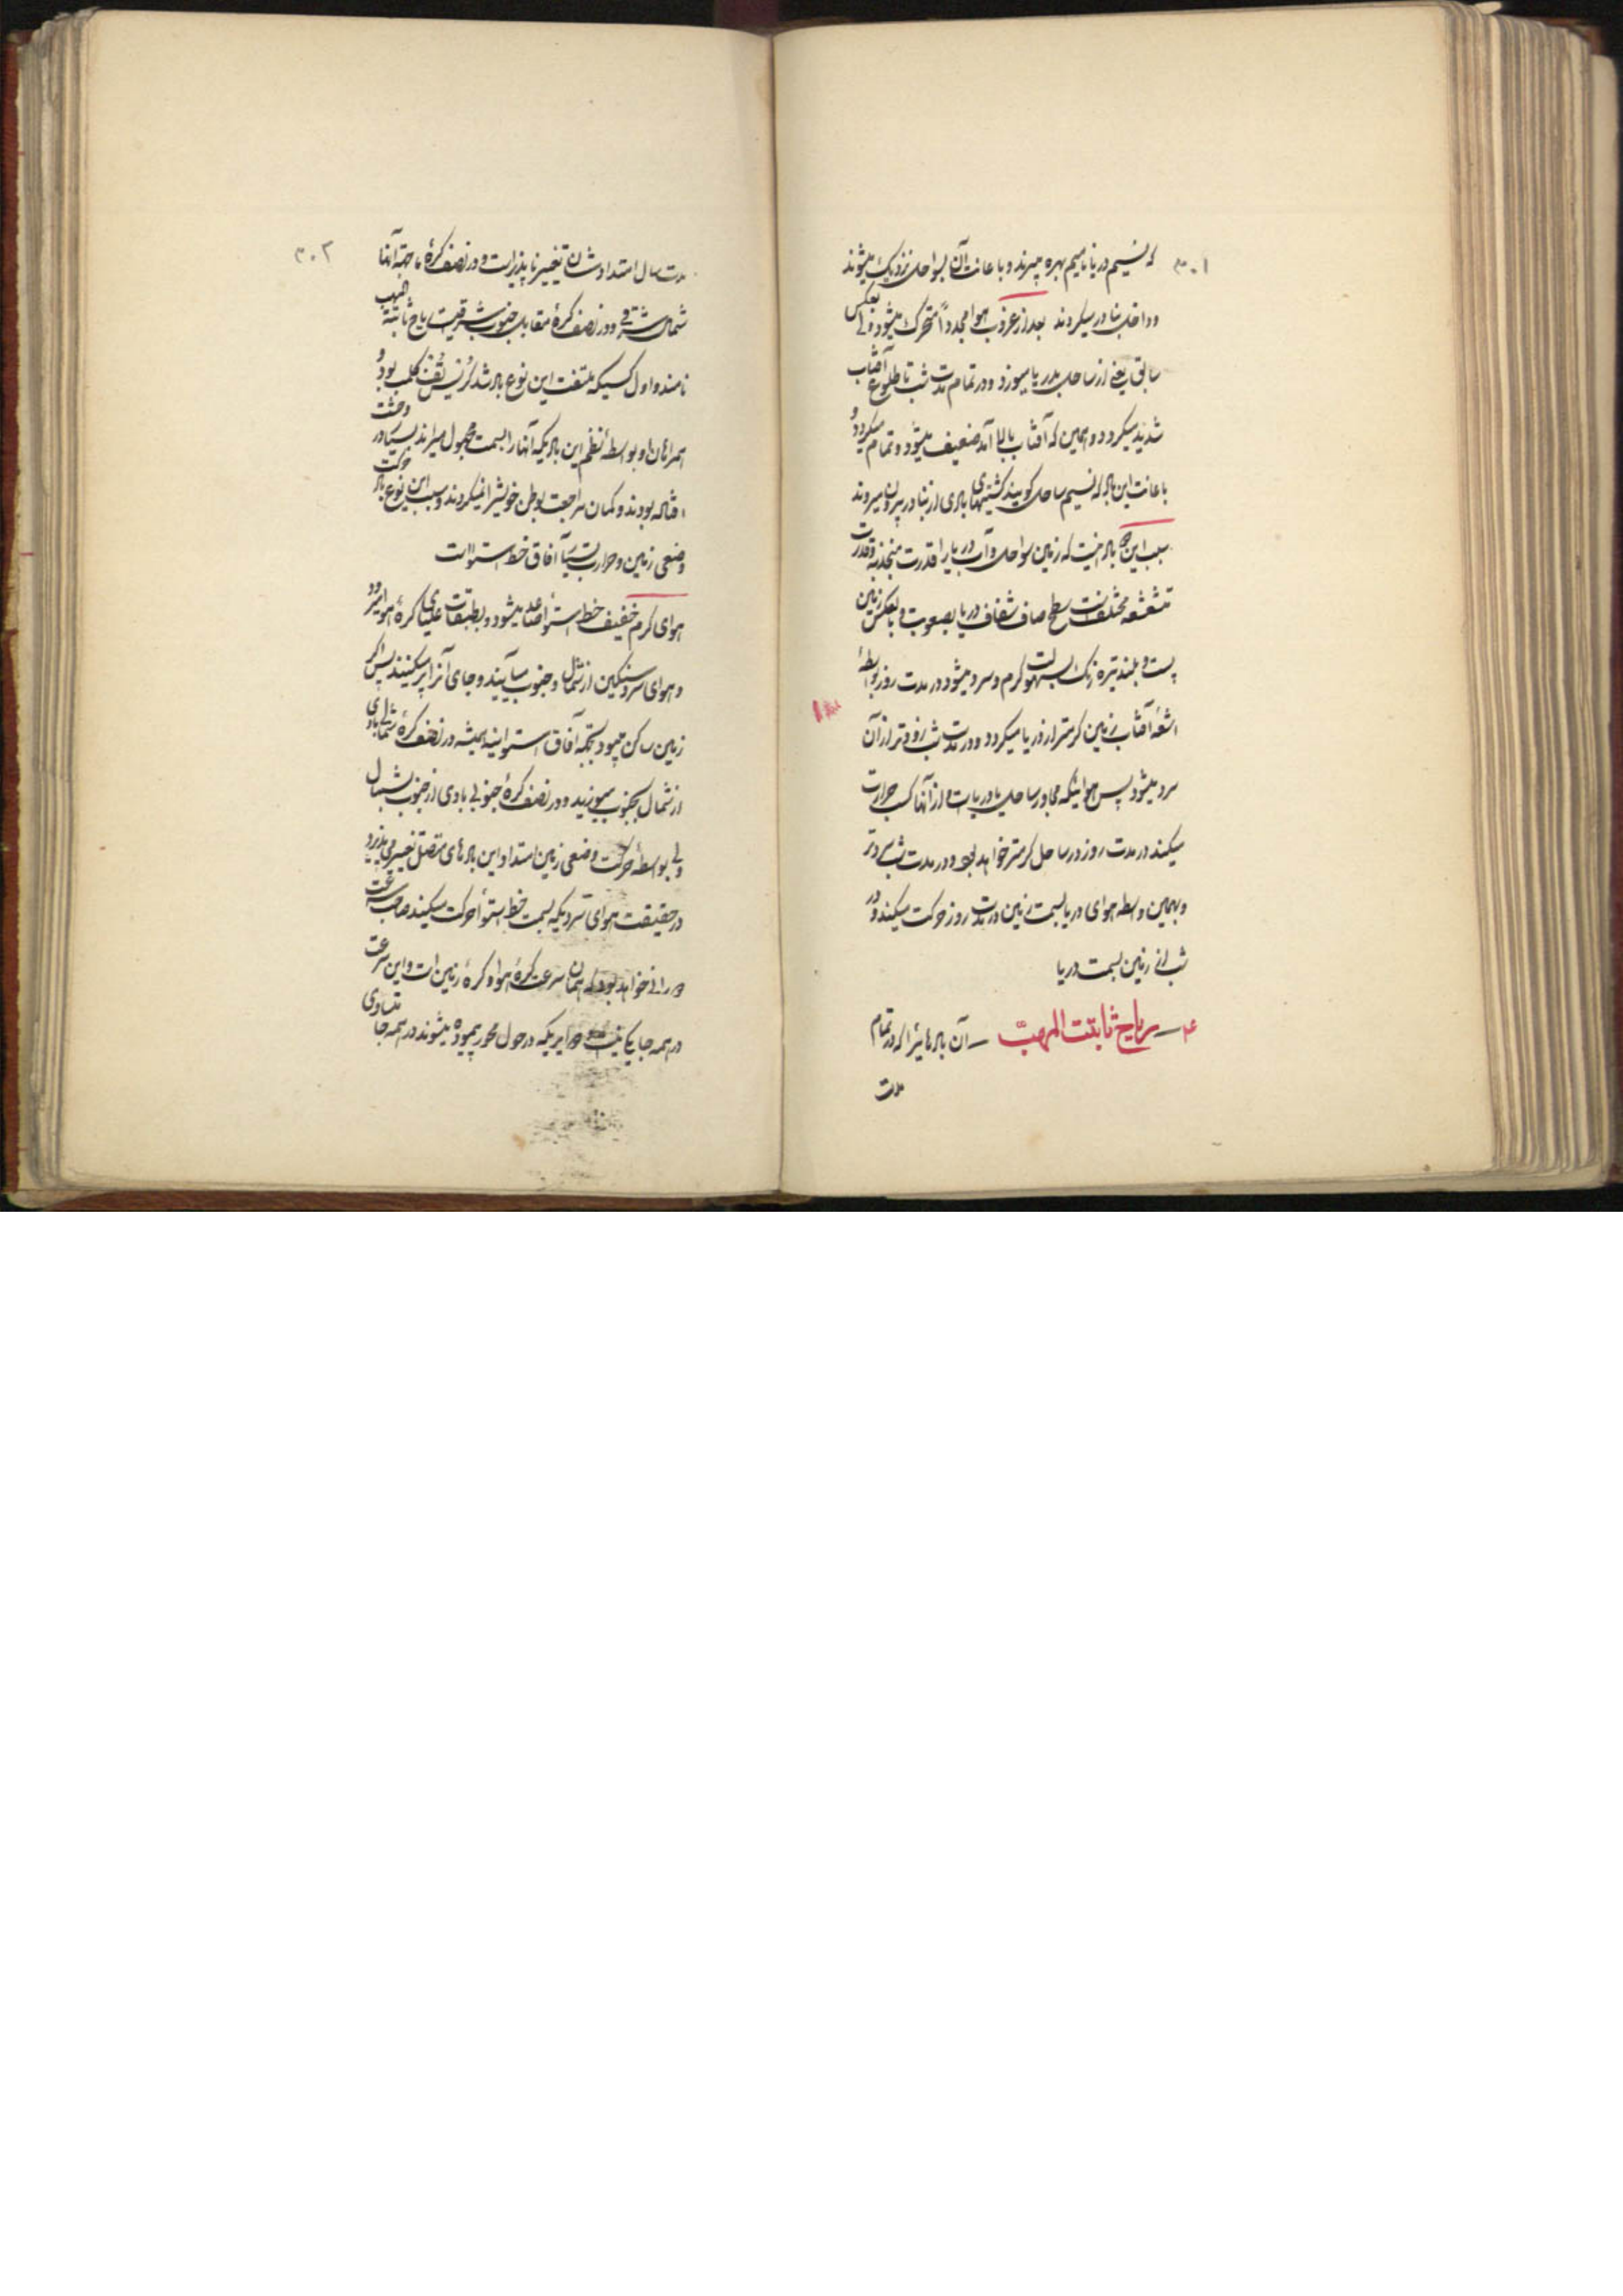 ۳۰۱
که نسیم دریا نامیم بهره میبرند و با عانت آن بسواحل نزدیک میشوند
و داخل بنادر میکردند بعد از غروب هوا مجدداً متحرک میشود ولی بعکس
سابق یعنی از ساحل بدریا میوزد و در تمام مدت شب تا طلوع آفتاب
شدید میکردد و همین که آفتاب بالا آمد ضعیف میشود و تمام میکردد و
با عانت این باد که نسیم ساحل کویند کشتیهای بادی از بنادر بیرون میروند
سبب این باد اینست که زمین سواحل و آب دریا را قدرت منجذبه و قدرت
متشعشعه مختلف است سطح صاف شفاف دریا بصعوبت و بعکس زمین
پست و بلند تیره رنک بسهولت کرم و سرد میشود در مدت روز بواسطهٔ
اشعهٔ آفتاب زمین کرمتر از دریا میکردد و در مدت شب زودتر از آن
سرد میشود پس هوائیکه مجاور ساحل یا دریاست و از آنها کسب حرارت
میکند در مدت روز در ساحل کرمتر خواهد بود و در مدت شب سردتر
و بهمین واسطه هوای دریا بسمت زمین در مدت روز حرکت میکند و در
شب از زمین بسمت دریا
۴ ــ ریاح ثابتت المهبّ ــ آن بادهائیرا که در تمام
مدت
۳۰۲
مدت سال امتدادشان تغییر ناپذیر است و در نصف کرهٔ ما جهة آنها
شمال شرقی و در نصف کرهٔ مقابل جنوب شرقیست ریاح ثابتة المهب
نامند و اول کسیکه ملتفت این نوع باد شد کلمب بود و
همراهان او بواسطهٔ نظم این باد یکه آنها را بسمت مجهول میراند بسیار در وحشت
افتاده بودند و کمان مراجعت بوطن خویش را نمیکردند و سبب این نوع باد حرکت
وضعی زمین و حرارت بسیار آفاق خط استواست
هوای کرم خفیف خط استوا صاعد میشود و بطبقات علیای کرهٔ هوا میرود
و هوای سرد سنکین از شمال و جنوب میآیند و جای آنرا پر میکنند پس اکر
زمین ساکن میبود بجمیع آفاق استوائیه همیشه در نصف کرهٔ شمالی بادی
از شمال بجنوب میوزید و در نصف کرهٔ جنوبی بادی از جنوب بشمال
ولی بواسطهٔ حرکت وضعی زمین امتداد این بادهای متصل تغییر می پذیرد
در حقیقت هوای سردیکه بسمت خط استوا حرکت میکند صاحب سرعت
دورانی خواهد بود که همان سرعت کرهٔ هوا و کرهٔ زمین است و این سرعت
در همه جا یکی نیست دوایریکه در حول محور پیموده میشوند در همه جا متساوی